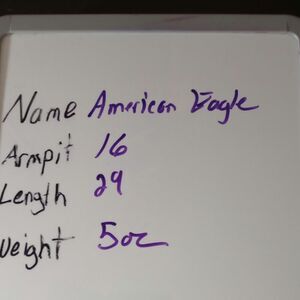 Name American Eagle
Armpit 16
Length 29
Weight 5oz